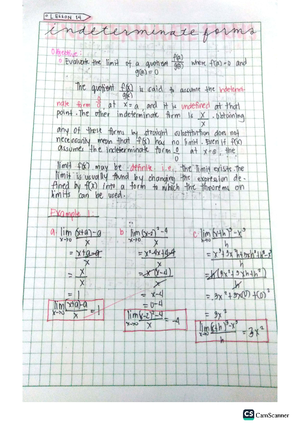 • LESSON 14
indeterminate forms
Objective:
• Evaluate the limit of a quotient f(x)/g(x) where f(a)=0 and
g(a)=0
The quotient f(x)/g(x) is said to assume the indetermi-
nate form 0/0 at x=a, and it is undefined at that
point. The other indeterminate form is
obtaining
any of those forms by straight substitution does not
necessarily mean that f(x) has no limit. Even if f(x)
assumes the indeterminate form 0/0 at x=a, the
limit f(x) may be definite i.e., the limit exists. The
limit is usually found by changing the expression de-
fined by f(x) into a form to which the theorems on
limits can be used.
Example 1:
a. lim x→0 (x+a)-a / x
= x+a-a / x
= x / x
= 1
lim x→0 (x+a)-a / x = 1
b. lim x→0 (x-2)²-4 / x
= x²-4x+4-4 / x
= x(x-4) / x
= x-4
= 0-4
lim x→0 (x-2)²-4 / x = -4
c. lim h→0 (x+h)³-x³ / h
= x³+3x²h+3xh²+h³-x³ / h
= h(3x²+3xh+h²) / h
= 3x²+3x(0)+(0)²
= 3x²
lim h→0 (x+h)³-x³ / h = 3x²
CS CamScanner